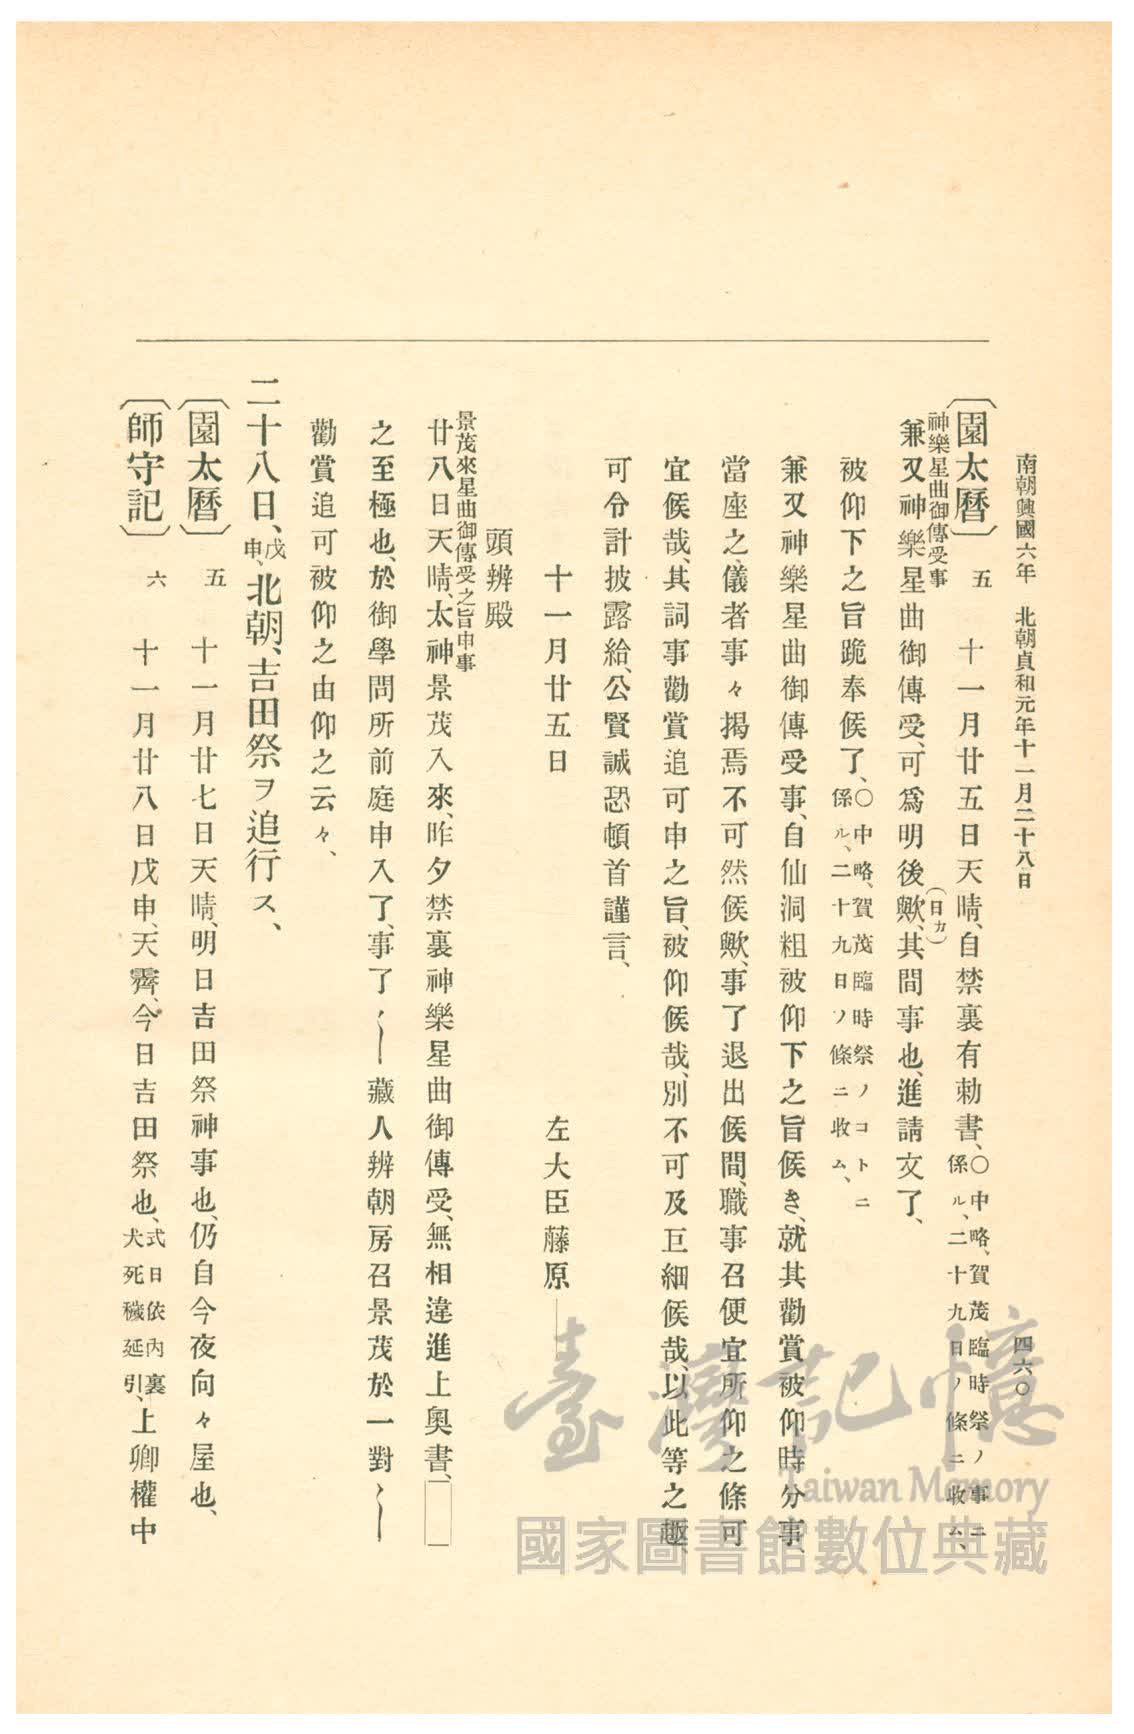 南朝興國六年　北朝貞和元年十一月二十八日
四六〇
〔園太曆〕五　十一月廿五日天晴、自禁裏有勅書、〇中略、賀茂臨時祭ノ事ニ係ル、二十九日ノ條ニ收ム、
神樂星曲御傳受事
兼又神樂星曲御傳受、可爲明後歟、(日カ)其間事也、進請文了、
被仰下之旨跪奉候了、〇中略、賀茂臨時祭ノコトニ係ル、二十九日ノ條ニ收ム、
兼又神樂星曲御傳受事、自仙洞粗被仰下之旨候き、就其勸賞被仰時分事、
當座之儀者事々揭焉不可然候歟、事了退出候間、職事召便宜所仰之條可
宜候哉、其詞事勸賞追可申之旨、被仰候哉、別不可及巨細候哉、以此等之趣、
可令計披露給、公賢誠恐頓首謹言、
十一月廿五日　左大臣藤原——
頭辨殿
景茂來星曲御傳受之旨申事
廿八日天晴、太神景茂入來、昨夕禁裏神樂星曲御傳受、無相違進上奧書、
之至極也、於御學問所前庭申入了、事了〱藏人辨朝房召景茂於一對〱
勸賞追可被仰之由仰之云々、
二十八日、戊申、北朝、吉田祭ヲ追行ス、
〔園太曆〕五　十一月廿七日天晴、明日吉田祭神事也、仍自今夜向々屋也、
〔師守記〕六　十一月廿八日戊申、天霽、今日吉田祭也、式日依內裏犬死穢延引、上卿權中
臺灣記憶
Taiwan Memory
國家圖書館數位典藏